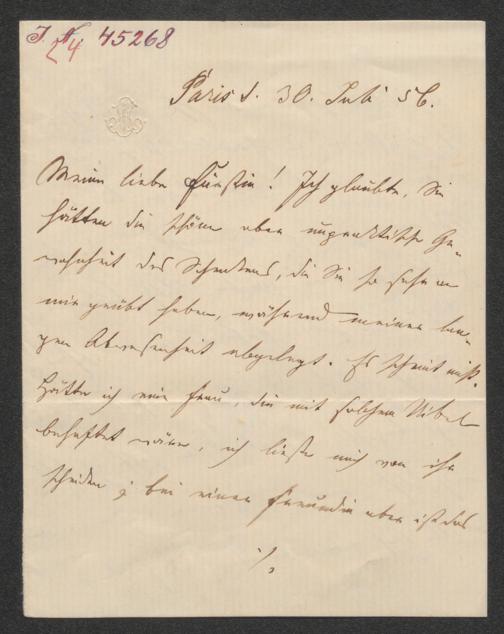 J. N. 45268
24
Paris d. 30. Juli 56.
Meine liebe Fürstin! Ich glaubte, Sie
hätten die schöne aber unpraktische Ge-
wohnheit des Schenkens, die Sie so sehr an
mir geübt haben, während meiner lan-
gen Abwesenheit abgelegt. Es scheint nicht.
Hätte ich eine Frau, die mit solchem Übel
behaftet wäre, ich ließe mich von ihr
scheiden; bei einer Freundin aber ist das
./.